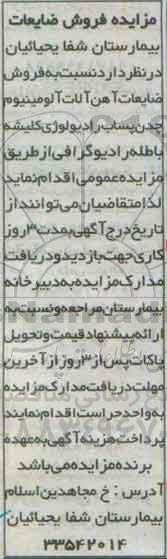 مزایده فروش ضایعات
بیمارستان شفا یحیائیان
در نظر دارد نسبت به فروش
ضایعات آهن آلات آلومینیوم
چدن پساب رادیولوژی کلیشه
باطله رادیوگرافی از طریق
مزایده عمومی اقدام نماید
لذا متقاضیان می توانند از
تاریخ درج آگهی بمدت ۳ روز
کاری جهت بازدید و دریافت
مدارک مزایده به دبیرخانه
بیمارستان مراجعه و نسبت به
ارائه پیشنهاد قیمت و تحویل
پاکات پس از ۳ روز از آخرین
مهلت دریافت مدارک مزایده
به واحد حراست اقدام نمایند
پرداخت هزینه آگهی به عهده
برنده مزایده می باشد
آدرس : خ مجاهدین اسلام
بیمارستان شفا یحیائیان
۳۳۵۴۲۰۱۴